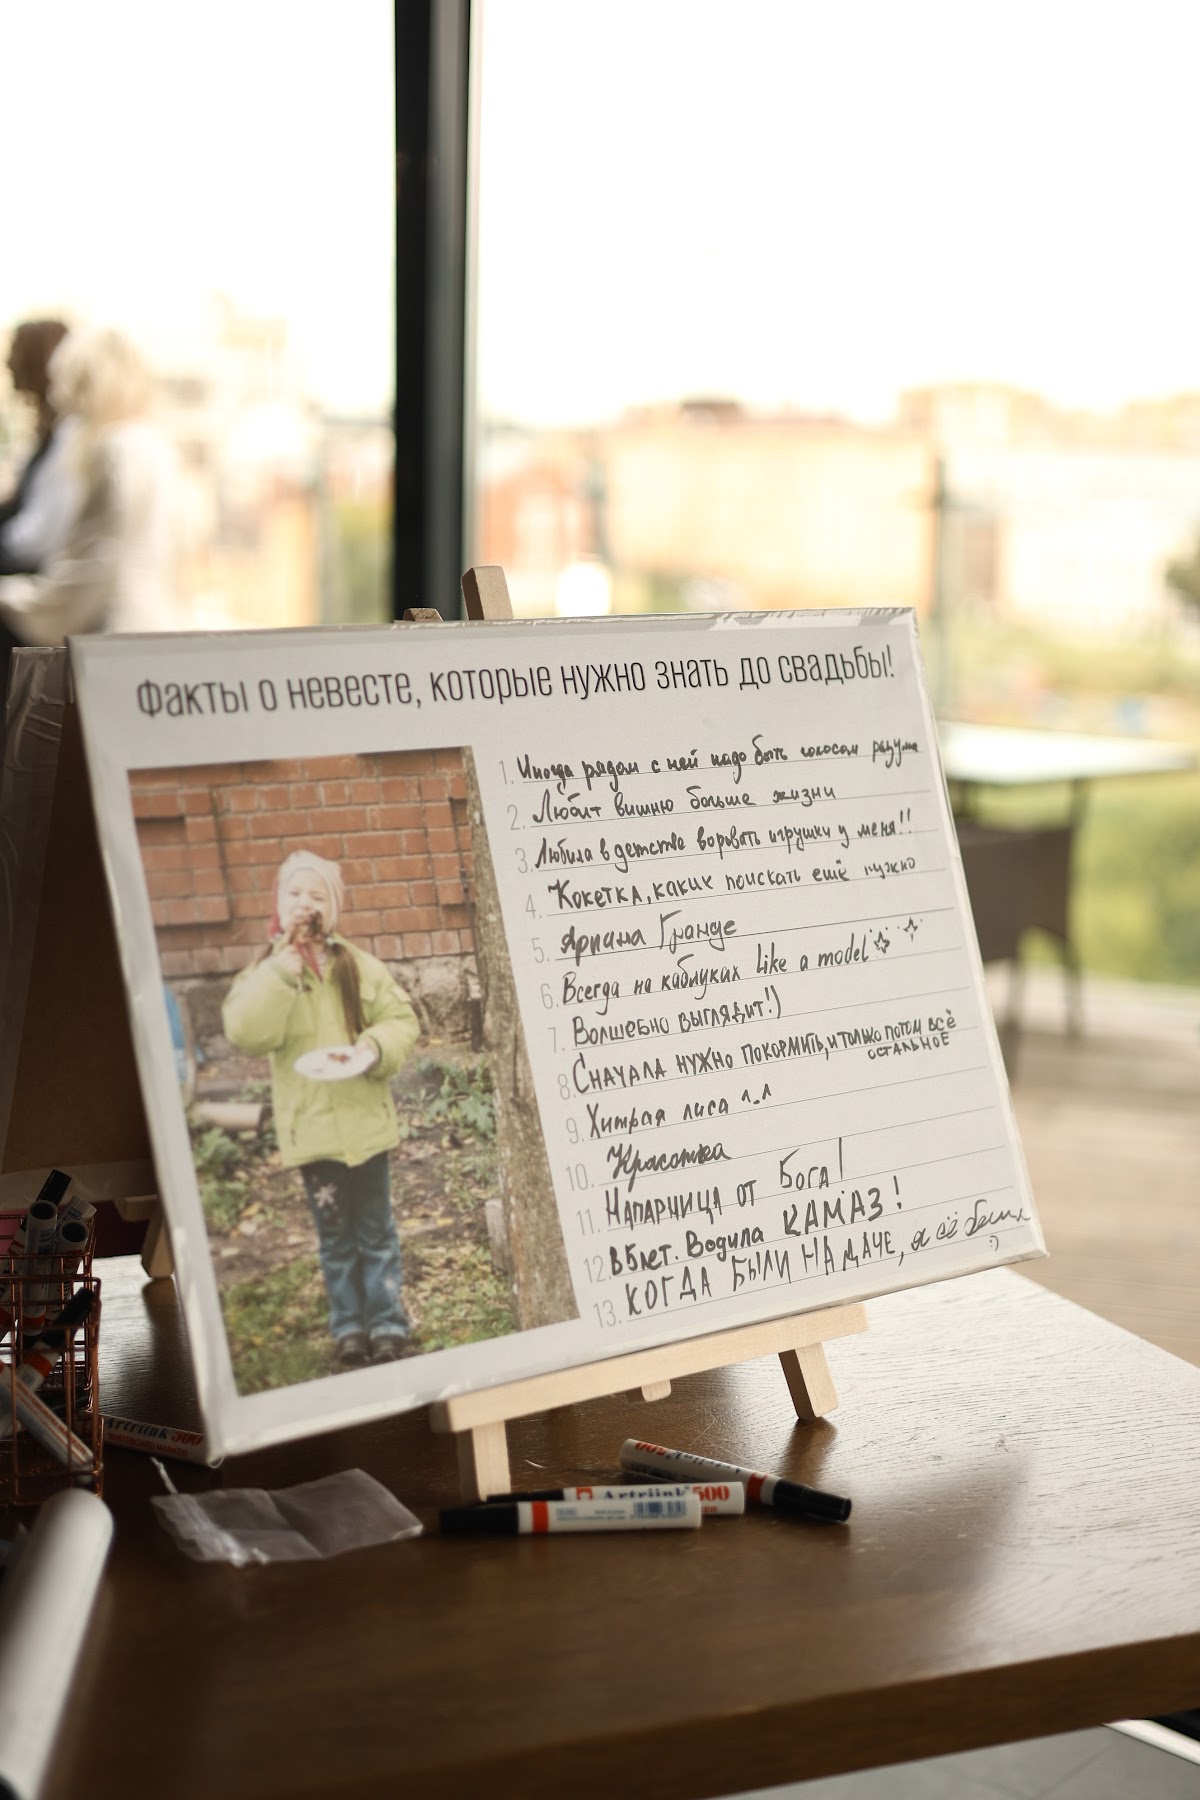 Факты о невесте, которые нужно знать до свадьбы!
1. Иногда рядом с ней надо быть голосом разума
2. Любит вишню больше жизни
3. Любила в детстве воровать игрушки у меня!!
4. Кокетка, каких поискать ещё нужно
5. Ариана Гранде
6. Всегда на каблуках like a model
7. Волшебно выглядит!)
8. Сначала нужно покормить, и только потом всё
остальное
9. Хитрая лиса ^_^
10. Красотка
11. Напарница от Бога!
12. В 5 лет. Водила КАМАЗ!
13. КОГДА БЫЛИ НА ДАЧЕ, я её била
:)
Artriink 500
Artriink 500
500